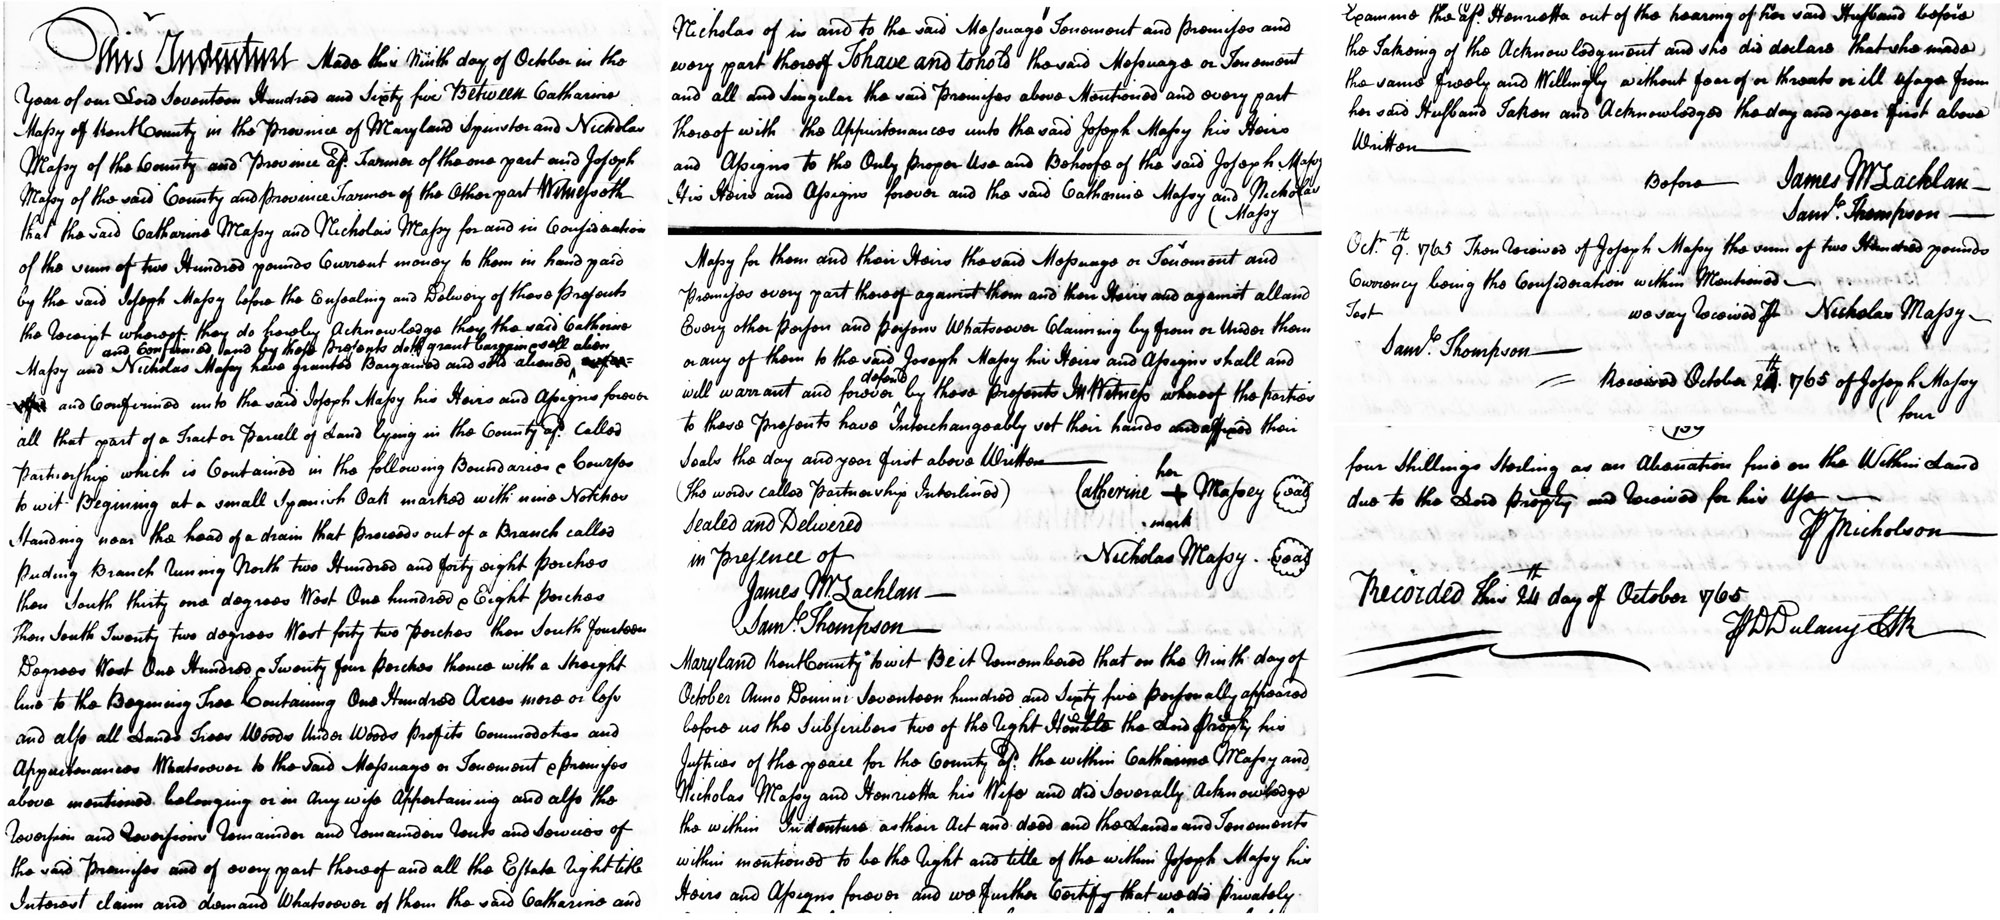 This Indenture Made this Ninth day of October in the
Year of our Lord Seventeen Hundred and Sixty five Between Catharine
Massy of Kent County in the Province of Maryland Spinster and Nicholas
Massy of the County and Province afd. Farmer of the one part and Joseph
Massy of the said County and Province Farmer of the Other part Witnesseth
that the said Catharine Massy and Nicholas Massy for and in Consideration
of the sum of two Hundred pounds Current money to them in hand paid
by the said Joseph Massy before the Ensealing and Delivery of these Presents
the receipt whereof they do hereby Acknowledge they the said Catherine
and Confirmed and by these presents doth grant bargain sell alien
Massy and Nicholas Massy have granted Bargained and sold aliened
and Confirmed unto the said Joseph Massy his Heirs and Assigns forever
all that part of a Tract or Parcell of Land lying in the County afd. Called
Partnership which is Contained in the following Boundaries & Courses
to wit Beginning at a small Spanish Oak marked with nine Notches
Standing near the head of a drain that Proceeds out of a Branch called
Puding Branch runing North two Hundred and forty eight perches
then South thirty one degrees West One hundred & Eight perches
Then South Twenty two degrees West forty two Perches then South fourteen
Degrees West One Hundred & Twenty four Perches thence with a straight
line to the Beginning Tree Containing One Hundred Acres more or less
and also all Lands Trees Woods Under Woods Profits Commodities and
Appurtenances Whatsoever to the said Messuage or Tenement & Premises
above mentioned belonging or in any wise Appertaining and also the
reversion and reversions remainder and remainders rents and Services of
the said Premises and of every part thereof and all the Estate right title
Interest claim and demand Whatsoever of them the said Catharine and
Nicholas of in and to the said Messuage Tenement and Premises and
every part thereof To have and to hold the said Messuage or Tenement
and all and Singular the said Premises above Mentioned and every part
thereof with the Appurtenances unto the said Joseph Massy his Heirs
and Assigns to the Only Proper Use and Behoofe of the said Joseph Massy
His Heirs and Assigns forever and the said Catharine Massy and Nicholas
(Massy
Massy for them and their Heirs the said Messuage or Tenement and
Premises every part thereof against them and their Heirs and against all and
Every other Person and Persons Whatsoever Claiming by from or Under them
or any of them to the said Joseph Massy his Heirs and Assigns shall and
defend
will warrant and forever by these Presents In Witness whereof the parties
to these Presents have Interchangeably set their hands and affixed their
Seals the day and year first above Written
(The words called Partnership Interlined)
her
Catherine + Massey Seal
mark
Sealed and Delivered
in Presence of
Nicholas Massy. Seal
James McLachlan
Saml. Thompson
Maryland Kent County to wit Be it remembered that on the Ninth day of
October Anno Domini Seventeen hundred and Sixty five personally appeared
before us the Subscribers two of the right Honble the Lord Propty his
Justices of the peace for the County afd. the within Catharine Massy and
Nicholas Massy and Henrietta his Wife and did Severally Acknowledge
the within Indenture as their Act and deed and the Lands and Tenements
within mentioned to be the right and title of the within Joseph Massy his
Heirs and Assigns forever and we further Certify that we did Privately
Examine the afd. Henrietta out of the hearing of her said Husband before
the Takeing of the Acknowledgment and she did declare that she made
the same freely and Willingly without fear of or threats or ill usage from
her said Husband Taken and Acknowledged the day and year first above
Written
Before James McLachlan
Saml. Thompson
Octr. 9th. 1765 Then received of Joseph Massy the sum of two Hundred pounds
Currency being the Consideration within Mentioned
Test we say received P Nicholas Massy
Saml. Thompson
Received October 24th. 1765 of Joseph Massy
(four
139
four Shillings Sterling as an Alienation fine on the Within Land
due to the Lord Propty and received for his Use
P J Nicholson
Recorded this 24th day of October 1765
P D Dulany Clk